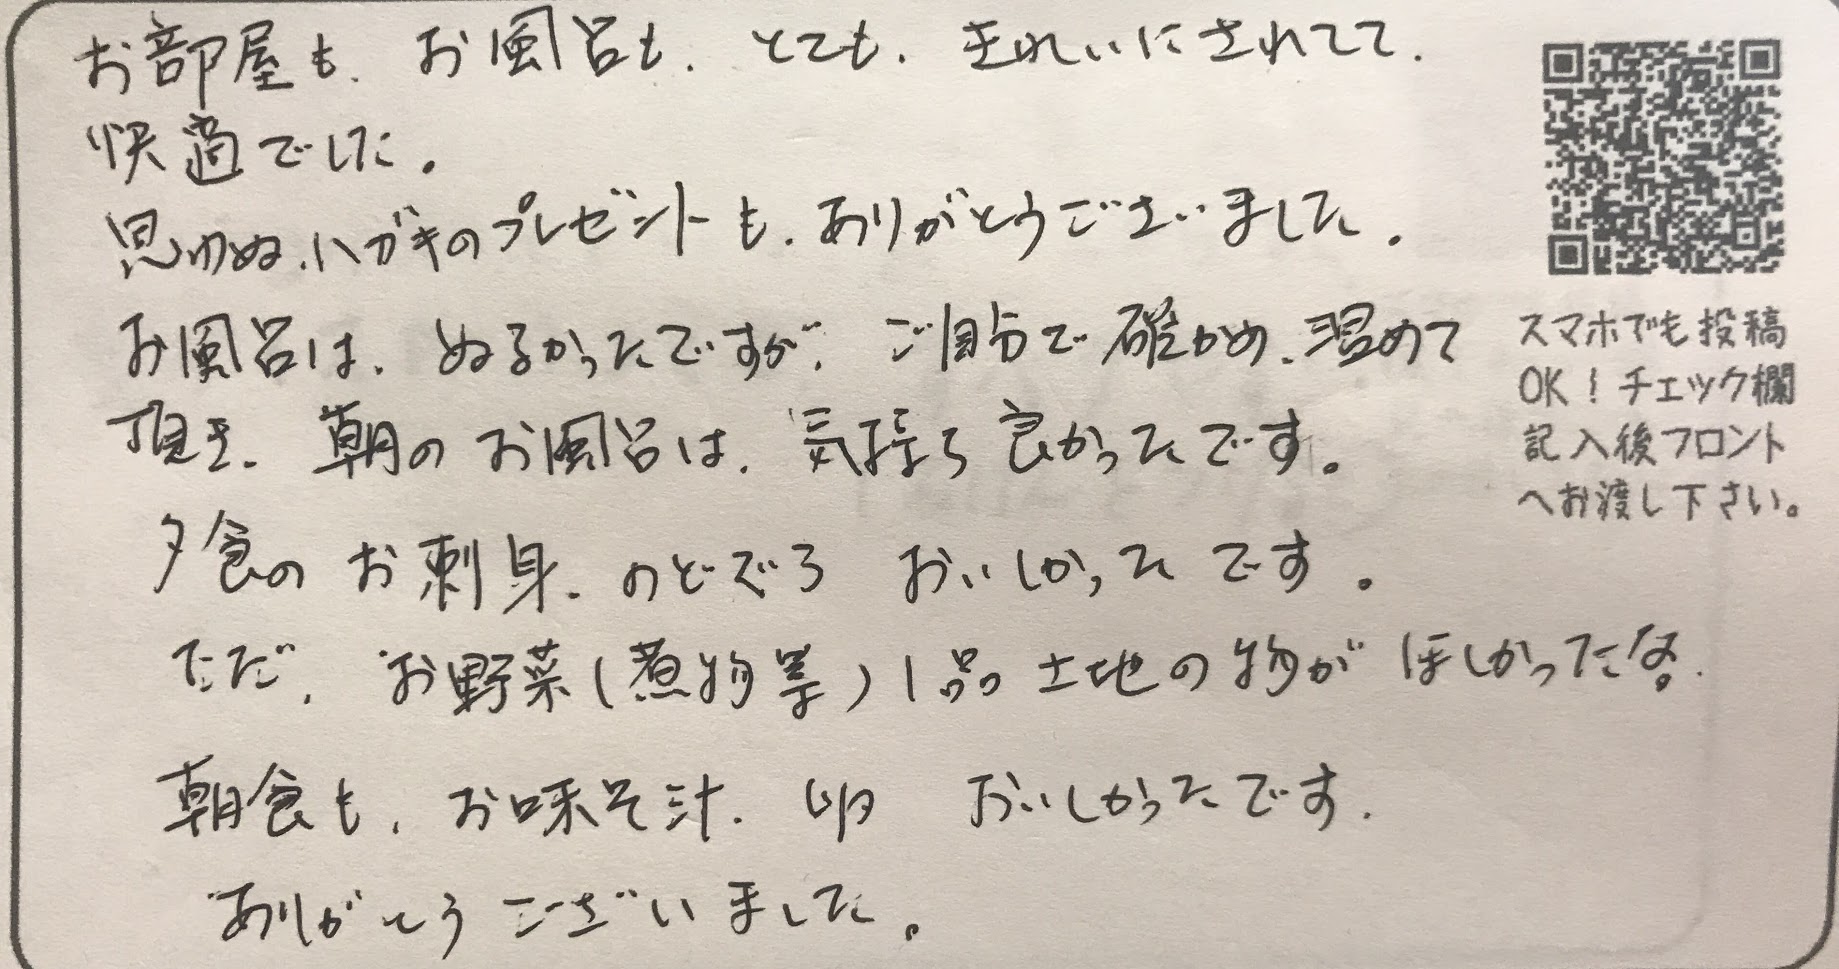 お部屋も、お風呂も、とても、きれいにされてて、
快適でした。
思わぬ、ハガキのプレゼントも、ありがとうございました。
お風呂は、ぬるかったですが、ご自分で確かめ、温めて
頂き、朝のお風呂は、気持ち良かったです。
夕食のお刺身、のどぐろ おいしかったです。
ただ、お野菜(煮物等)1品土地の物がほしかったな。
朝食も、お味そ汁、卵 おいしかったです。
ありがとうございました。
スマホでも投稿
OK!チェック欄
記入後フロント
へお渡し下さい。